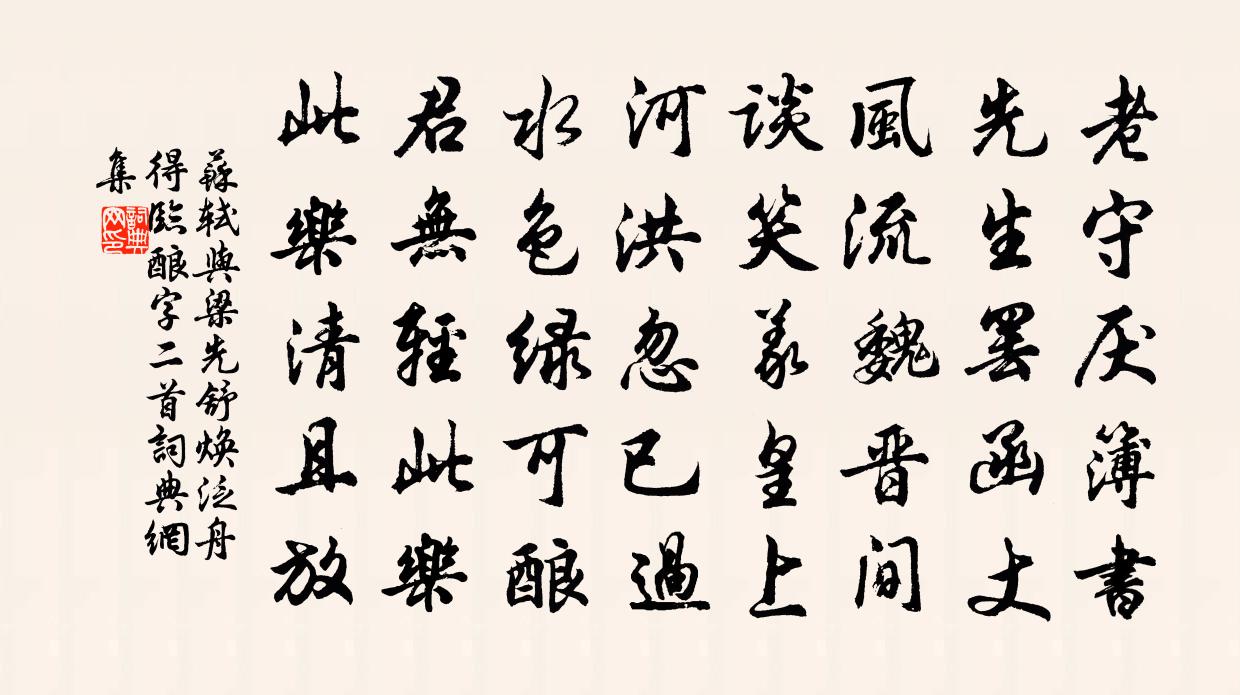 老守厌簿書
先生罢函丈
風流魏晋间
谈笑羲皇上
河洪忽已過
水色绿可酿
君無輕此樂
此樂清且放
蘇轼與梁先舒焕泛舟
得臨酿字二首詞典網
集
詞典网印